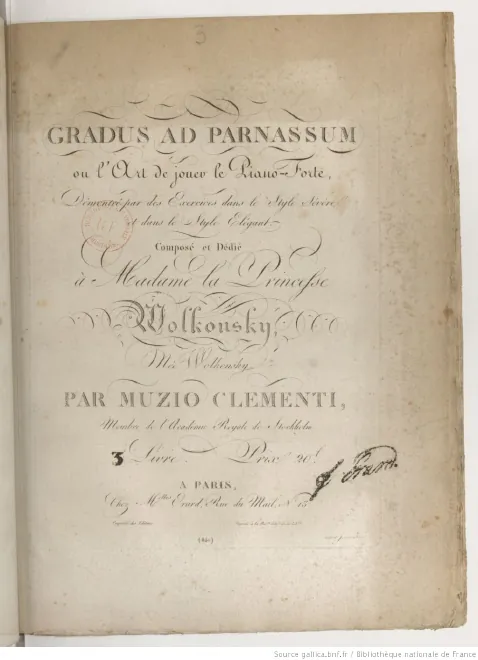 3
GRADUS AD PARNASSUM
ou l'Art de jouer le Piano-Forte,
Démontré par des Exercices dans le Style Sévère
et dans le Style Elégant
Composé et Dédié
à Madame la Princesse
Wolkonsky,
Née Wolkonsky
PAR MUZIO CLEMENTI,
Membre de l'Académie Royale de Stockholm
3 Livre. Prix 20f.
A PARIS,
Chez Mlles Erard, Rue du Mail, No 13
Propriété des Editeurs
Source gallica.bnf.fr / Bibliothèque nationale de France